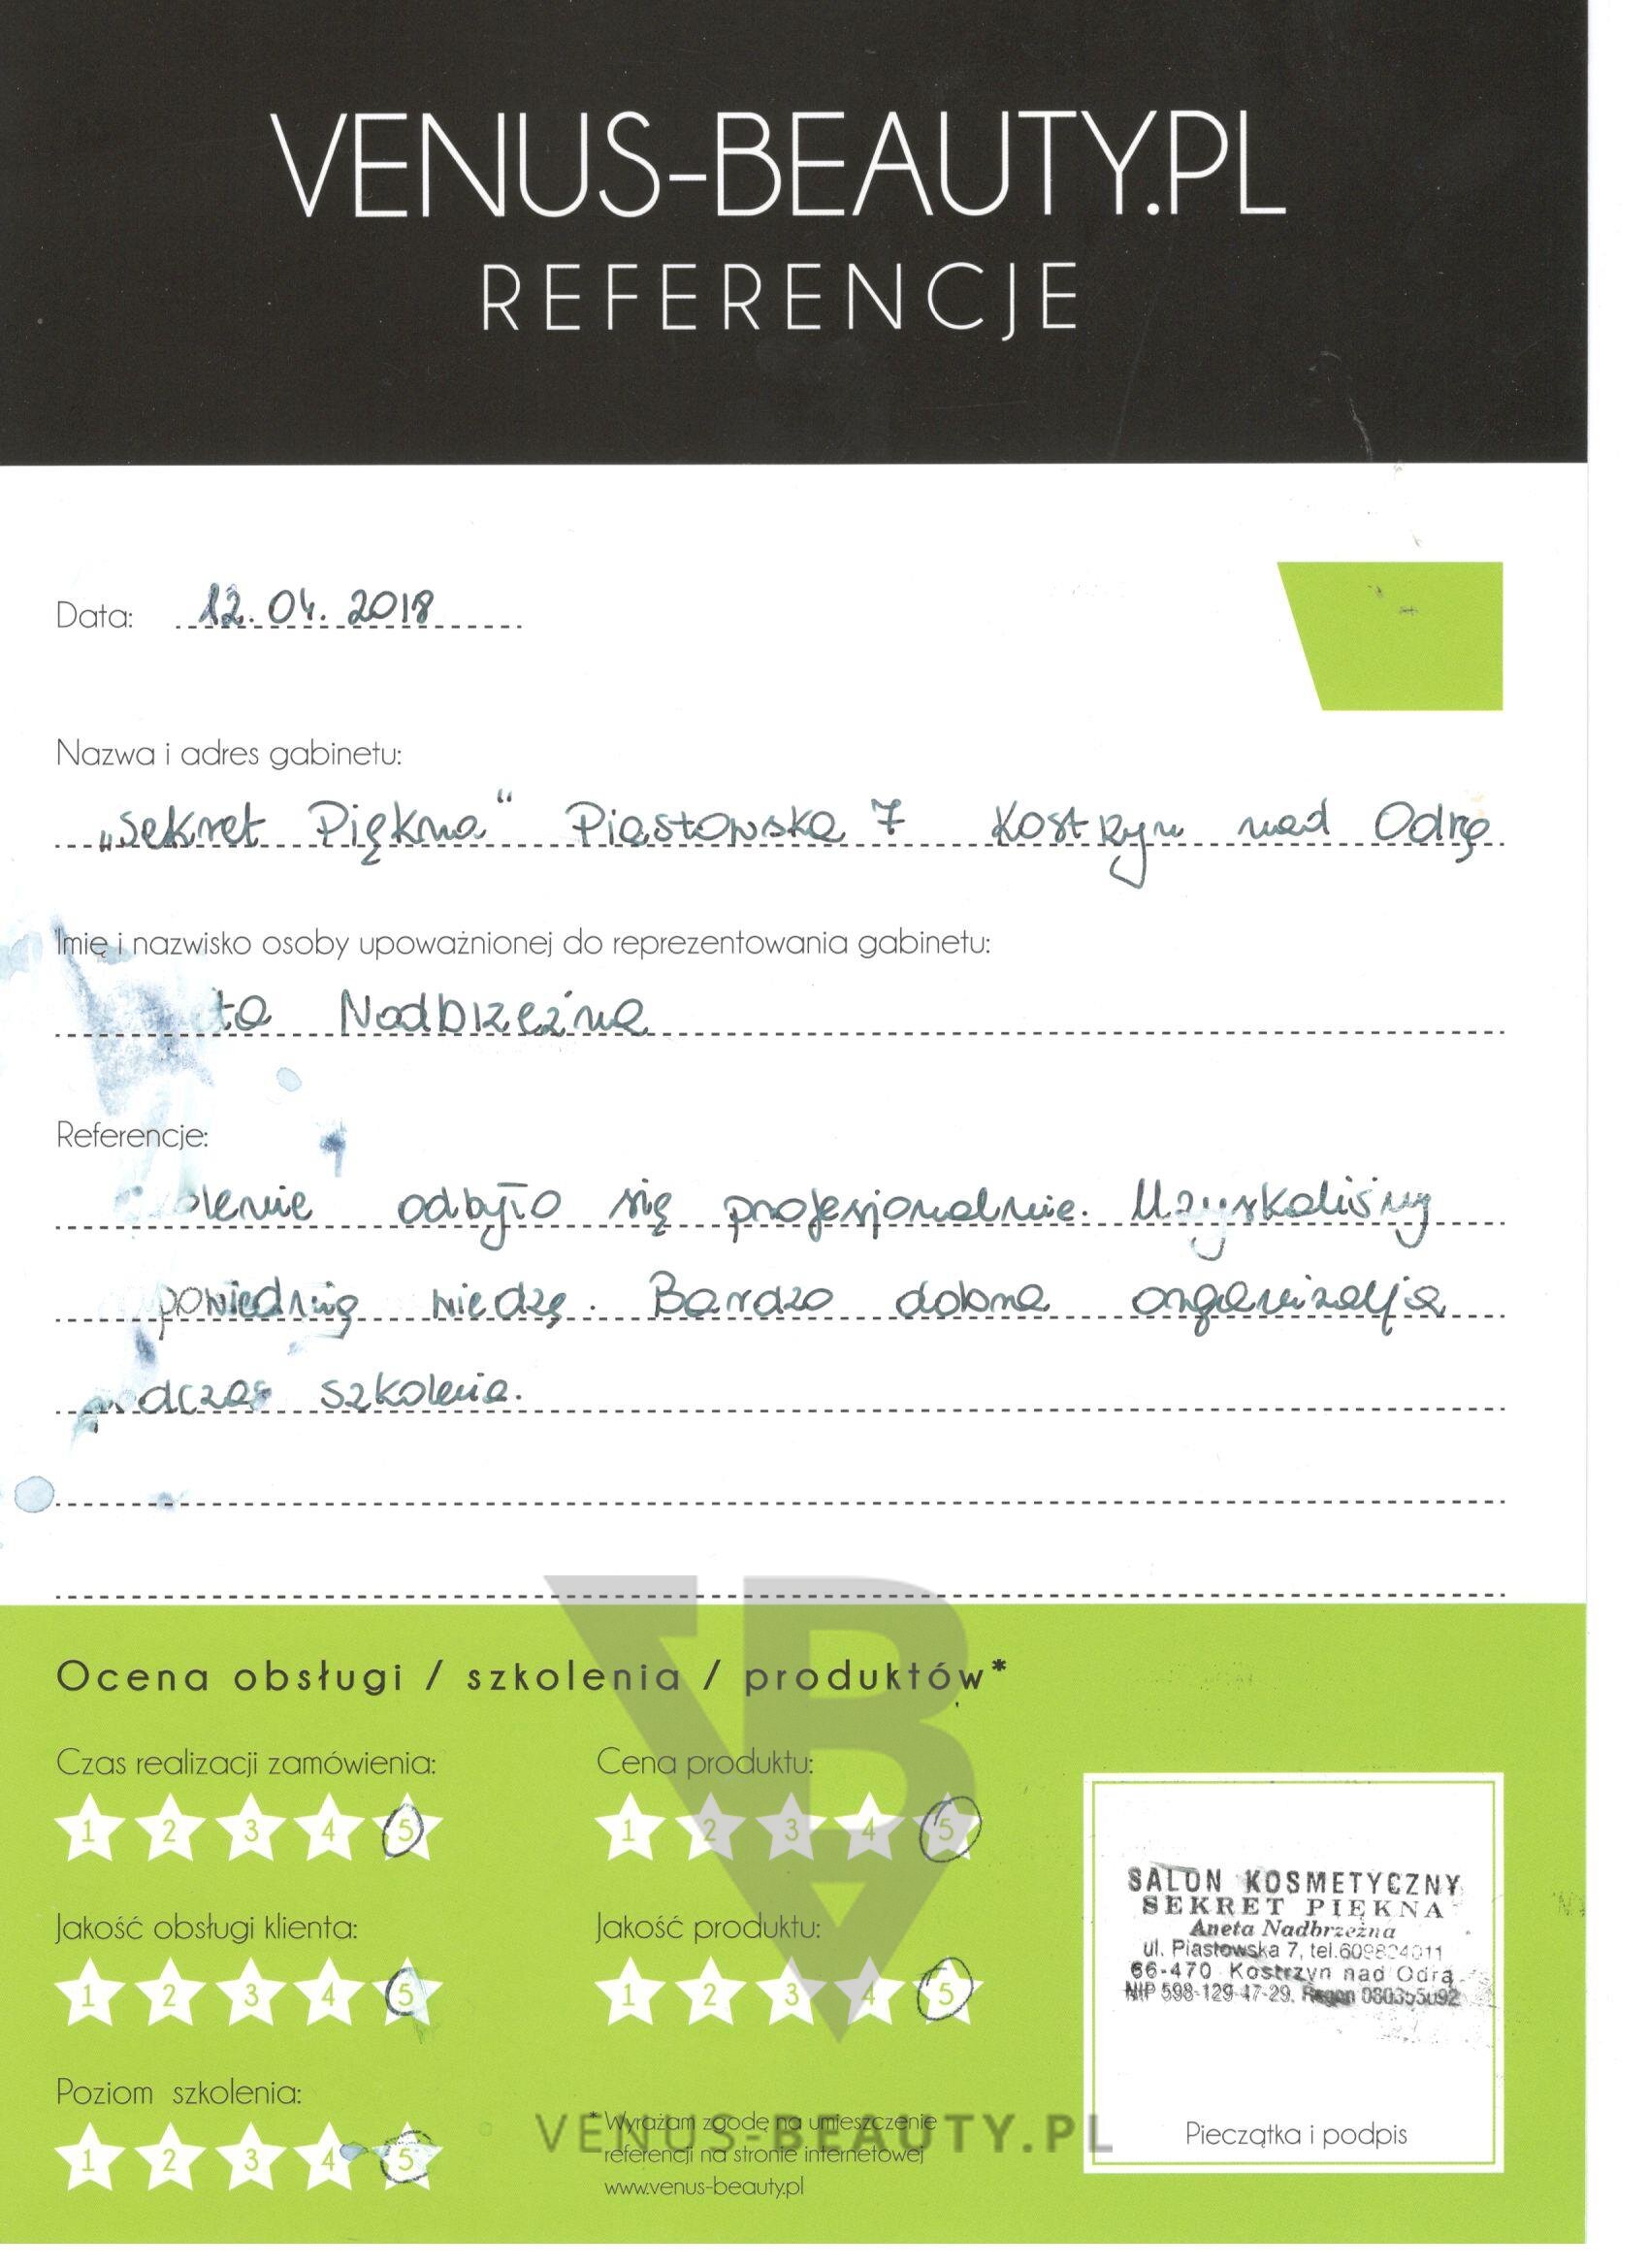 VENUS-BEAUTY.PL
REFERENCJE
Data: 12.04.2018
Nazwa i adres gabinetu:
„Sekret Piękna“ Piastowska 7 Kostrzyn nad Odrą
Imię i nazwisko osoby upoważnionej do reprezentowania gabinetu:
ta Nadbrzeżna
Referencje:
olenie odbyło się profesjonalnie. Uzyskaliśmy
powiednią wiedzę. Bardzo dobra organizacja
podczas szkolenia.
Ocena obsługi / szkolenia / produktów*
Czas realizacji zamówienia:
1 2 3 4 5
Cena produktu:
1 2 3 4 5
Jakość obsługi klienta:
1 2 3 4 5
Jakość produktu:
1 2 3 4 5
Poziom szkolenia:
1 2 3 4 5
* Wyrażam zgodę na umieszczenie
referencji na stronie internetowej
www.venus-beauty.pl
VENUS-BEAUTY.PL
SALON KOSMETYCZNY
SEKRET PIĘKNA
Aneta Nadbrzeżna
ul. Piastowska 7, tel.
66-470 Kostrzyn nad Odrą
NIP 598-129-47-29, Regon
Pieczątka i podpis